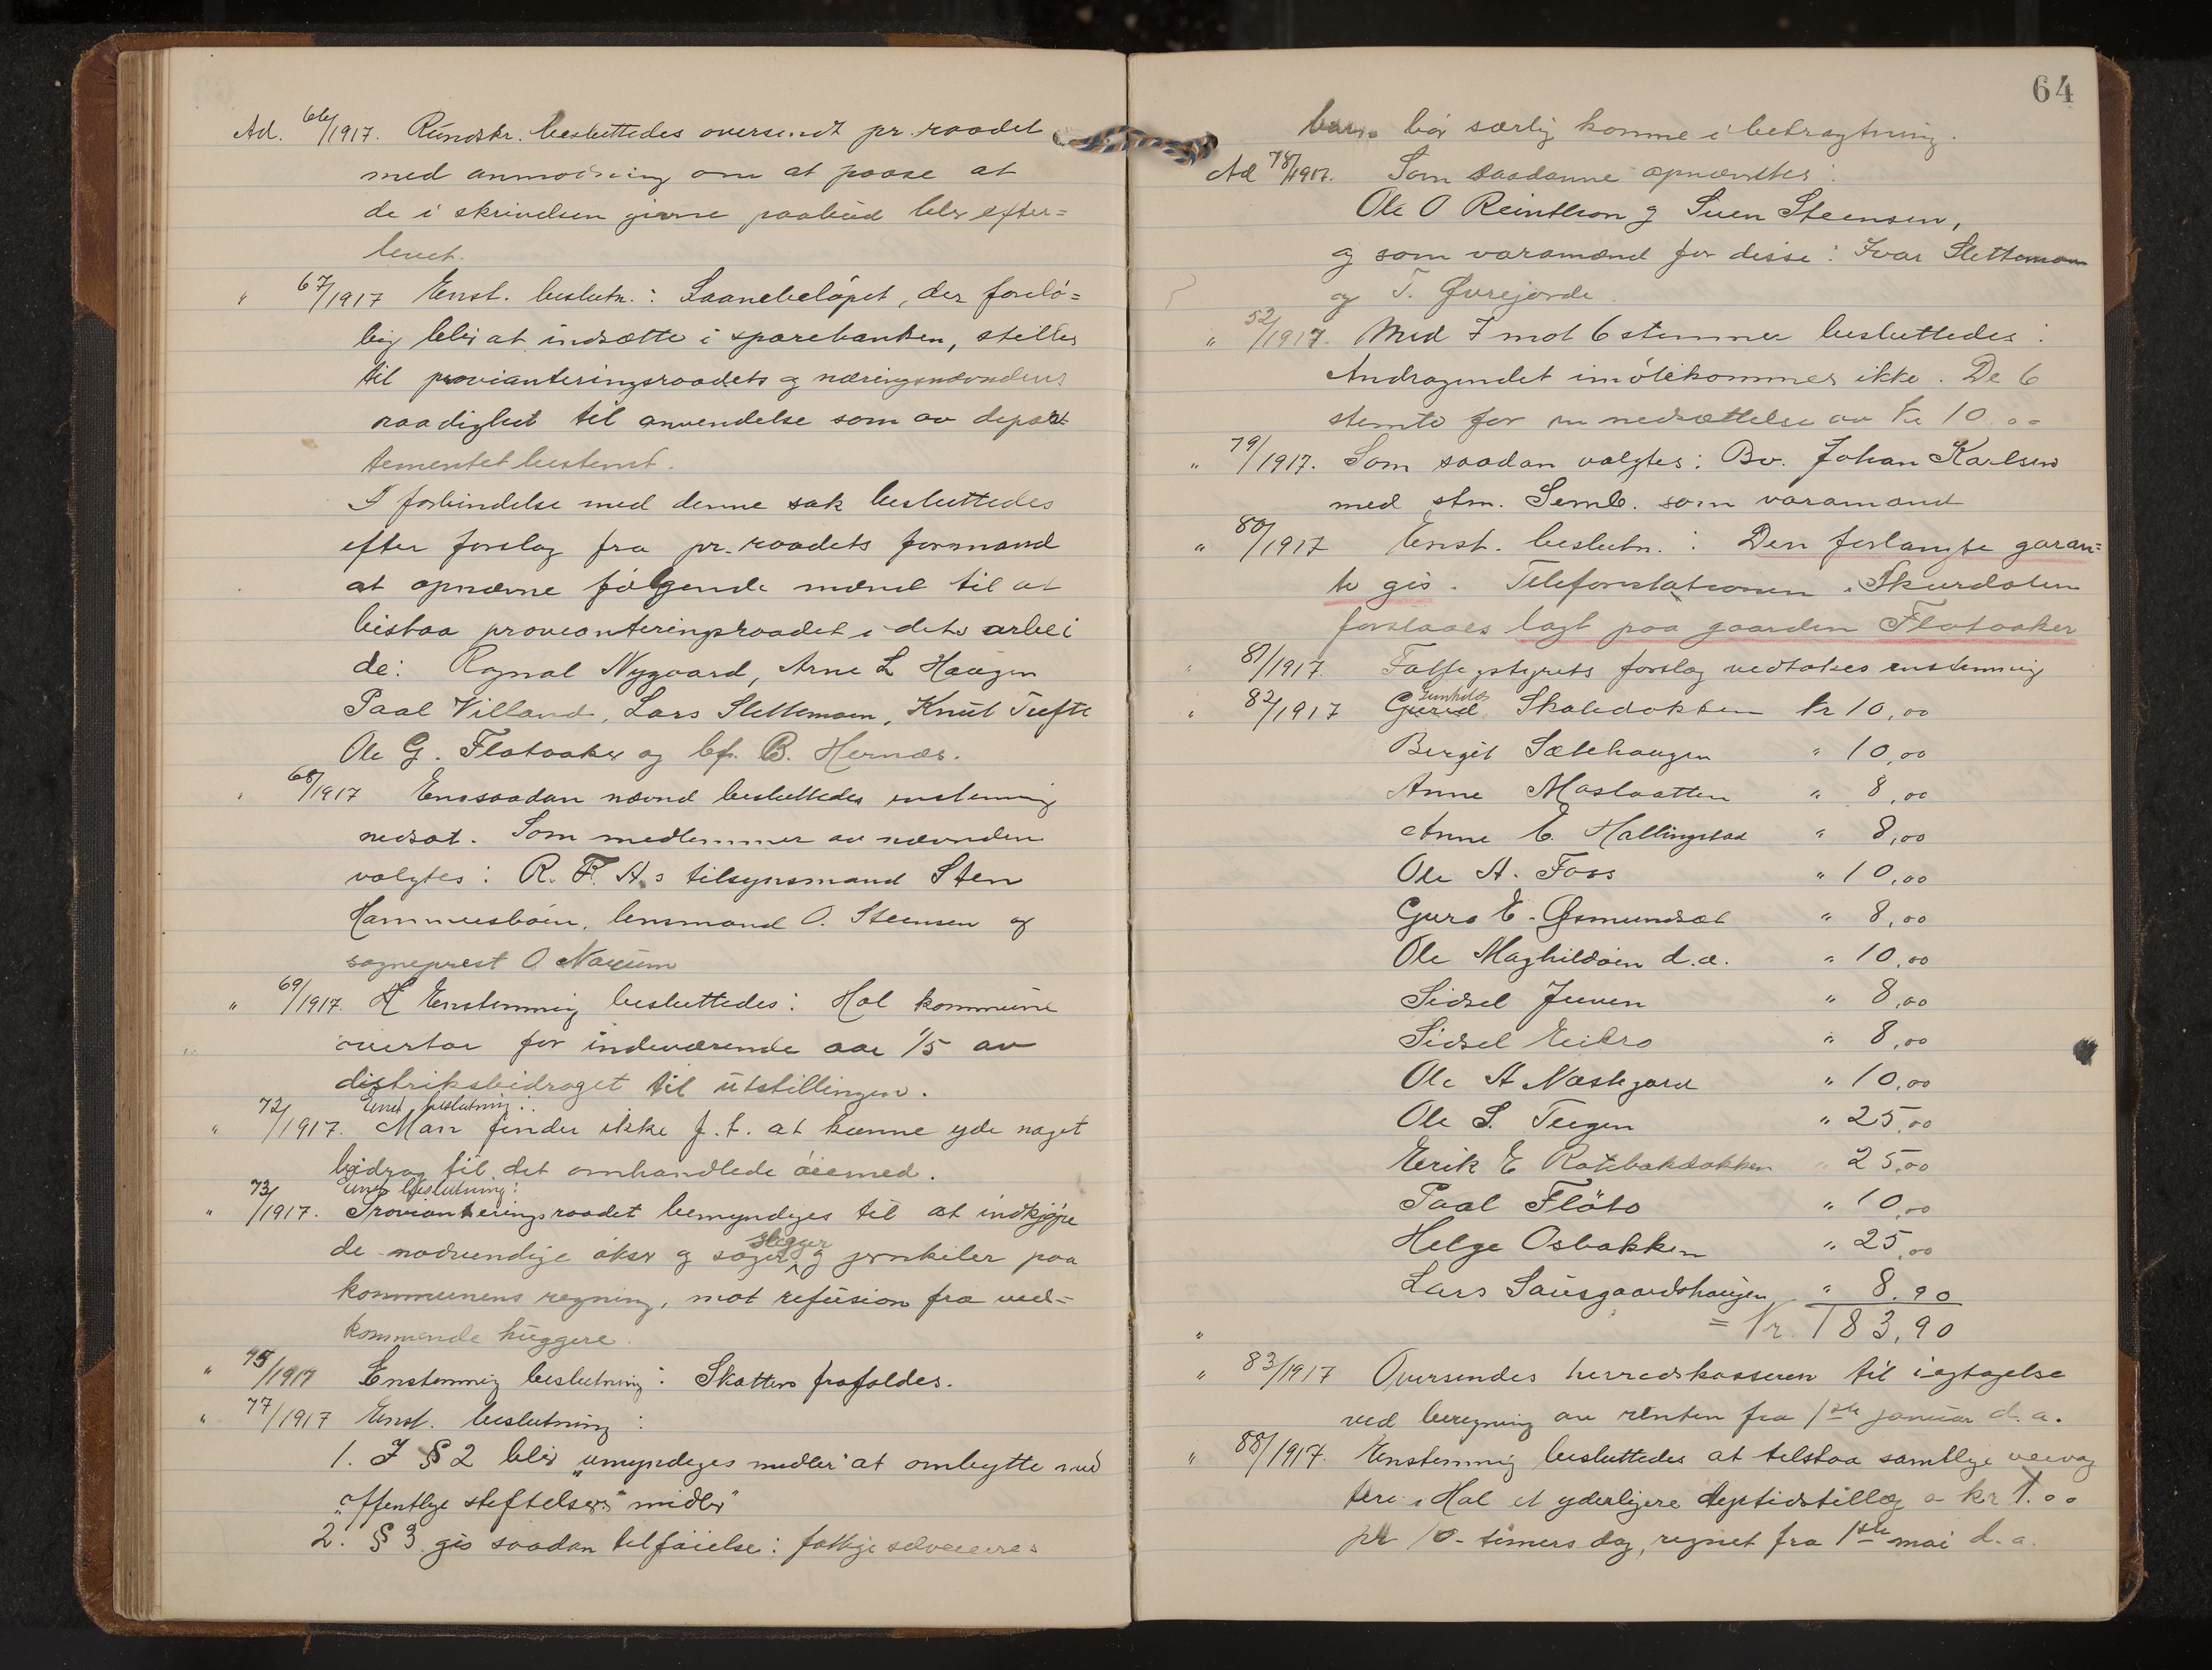 Ad. 66/1917. Rundskr. besluttedes oversendt pr. raadet
med anmodning om at paase at
de i skrivelsen givne paabud blir efter=
levet.
" 67/1917 Enst. beslutn.: Laanebeløpet, der forelø=
big blir at indsætte i sparebanken, stilles
til provianteringsraadets og næringsnævndens
raadighet til anvendelse som av depar-
tementet bestemt.
I forbindelse med denne sak besluttedes
efter forslag fra pr. raadets formand
at opnævne følgende mænd til at
bistaa provianteringsraadet i dets arbei
de: Ragnal Nygaard, Arne L Haugen
Paal Villand, Lars Slettemoen, Knut Tufte
Ole G. Flataaker og bf. B. Hernæs.
" 68/1917 En saadan nævnd besluttedes enstemmig
nedsat. Som medlemmer av nævnden
valgtes: R. F. A.s tilsynsmand Sten
Hammersbøen, lensmand O. Steensen og
sogneprest O Naeum
" 69/1917. Enstemmig besluttedes: Hol kommune
overtar for indeværende aar 1/5 av
distriksbidraget til utstillingen.
Enst. beslutning:
" 72/1917. Man finder ikke f. t. at kunne yde noget
bidrag til det omhandlede øiemed.
Enst beslutning:
" 73/1917. Provianteringsraadet bemyndiges til at indkjøpe
slegger
de nødvendige økser og sager og jernkiler paa
kommunens regning, mot refusion fra ved-
kommende huggere.
" 75/1917 Enstemmig beslutning: Skatten frafaldes.
" 77/1917 Enst. beslutning:
1. I § 2 blir "umyndiges midler" at ombytte med
"offentlige stiftelsers midler"
2. § 3 gis saadan tilføielse: fattige selveiere=
64
bør særlig komme i betragtning.
Ad 78/1917. Som saadanne opnævntes:
Ole O Reinthon og Sven Steensen,
og som varamænd for disse: Ivar Slettemoen
og T. Øvrejorde.
" 52/1917. Med 7 mot 6 stemmer besluttedes:
Andragendet imøtekommes ikke. De 6
stemte for en nedsættelse av kr 10.00
" 79/1917. Som saadan valgtes: Bv. Johan Karlsen
med stm. Semb. som varamand
" 80/1917 Enst. beslutn.: Den forlangte garan=
ti gis. Telefonstationen i Skurdalen
forslaaes lagt paa gaarden Flataaker
" 81/1917. Fattigstyrets forslag vedtokes enstemmig
Gunhild
" 82/1917 Gurid Skaledokken kr 10,00
Bergit Sætehaugen " 10,00
Anne Maslaatten " 8,00
Anne E. Hallingstad " 8,00
Ole A. Foss " 10,00
Guro E. Øsmundsæt " 8,00
Ole Maghildøien d.æ. " 10,00
Sidsel Juven " 8,00
Sidsel Eikro " 8,00
Ole A Næstegard " 10,00
Ole S. Teigen " 25,00
Eerik E Rotebakdokken " 25,00
Paal Fløto " 10,00
Helge Osbakken " 25,00
Lars Sausgaardshaugen " 8.90
" = Kr. 183,90
" 83/1917 Oversendes herredskassereren til iagtagelse
ved beregning av renten fra 1ste januar d.a.
" 88/1917. Enstemmig besluttedes at tilstaa samtlige veivog
tere i Hol et yderligere dyrtidstillæg a kr 1.00
pr 10-timers dag, regnet fra 1ste mai d.a.